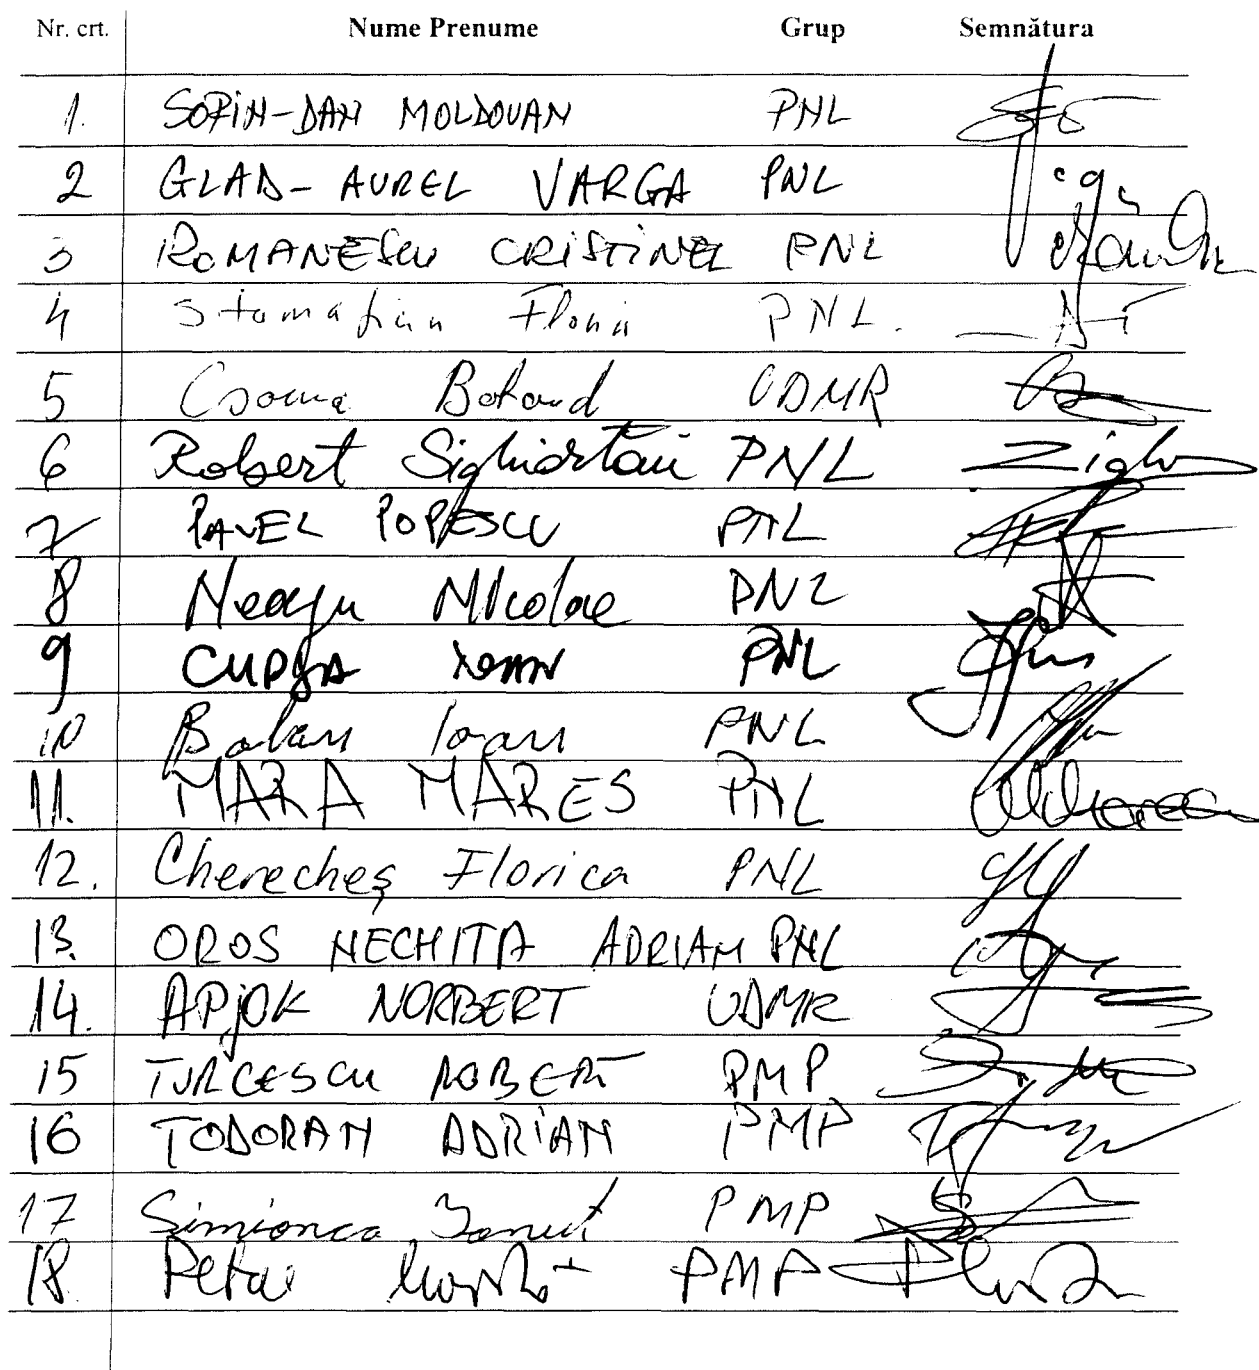 Nr. crt. Nume Prenume Grup Semnătura
1. SORIN-DAN MOLDOVAN PNL
2 GLAD-AUREL VARGA PNL
3 ROMANESCU CRISTINEL PNL
4 Stamatian Florin PNL.
5 Csoma Botond UDMR
6 Robert Sighiartău PNL
7 PAVEL POPESCU PNL
8 Neagu Nicolae PNL
9 CUPȘA IOAN PNL
10 Balan Ioan PNL
11. MARA MAREȘ PNL
12. Cherecheș Florica PNL
13. OROS NECHITA ADRIAN PNL
14. APJOK NORBERT UDMR
15 TURCESCU ROBERT PMP
16 TODORAN ADRIAN PMP
17 Simionca Ionuț PMP
18. PMP